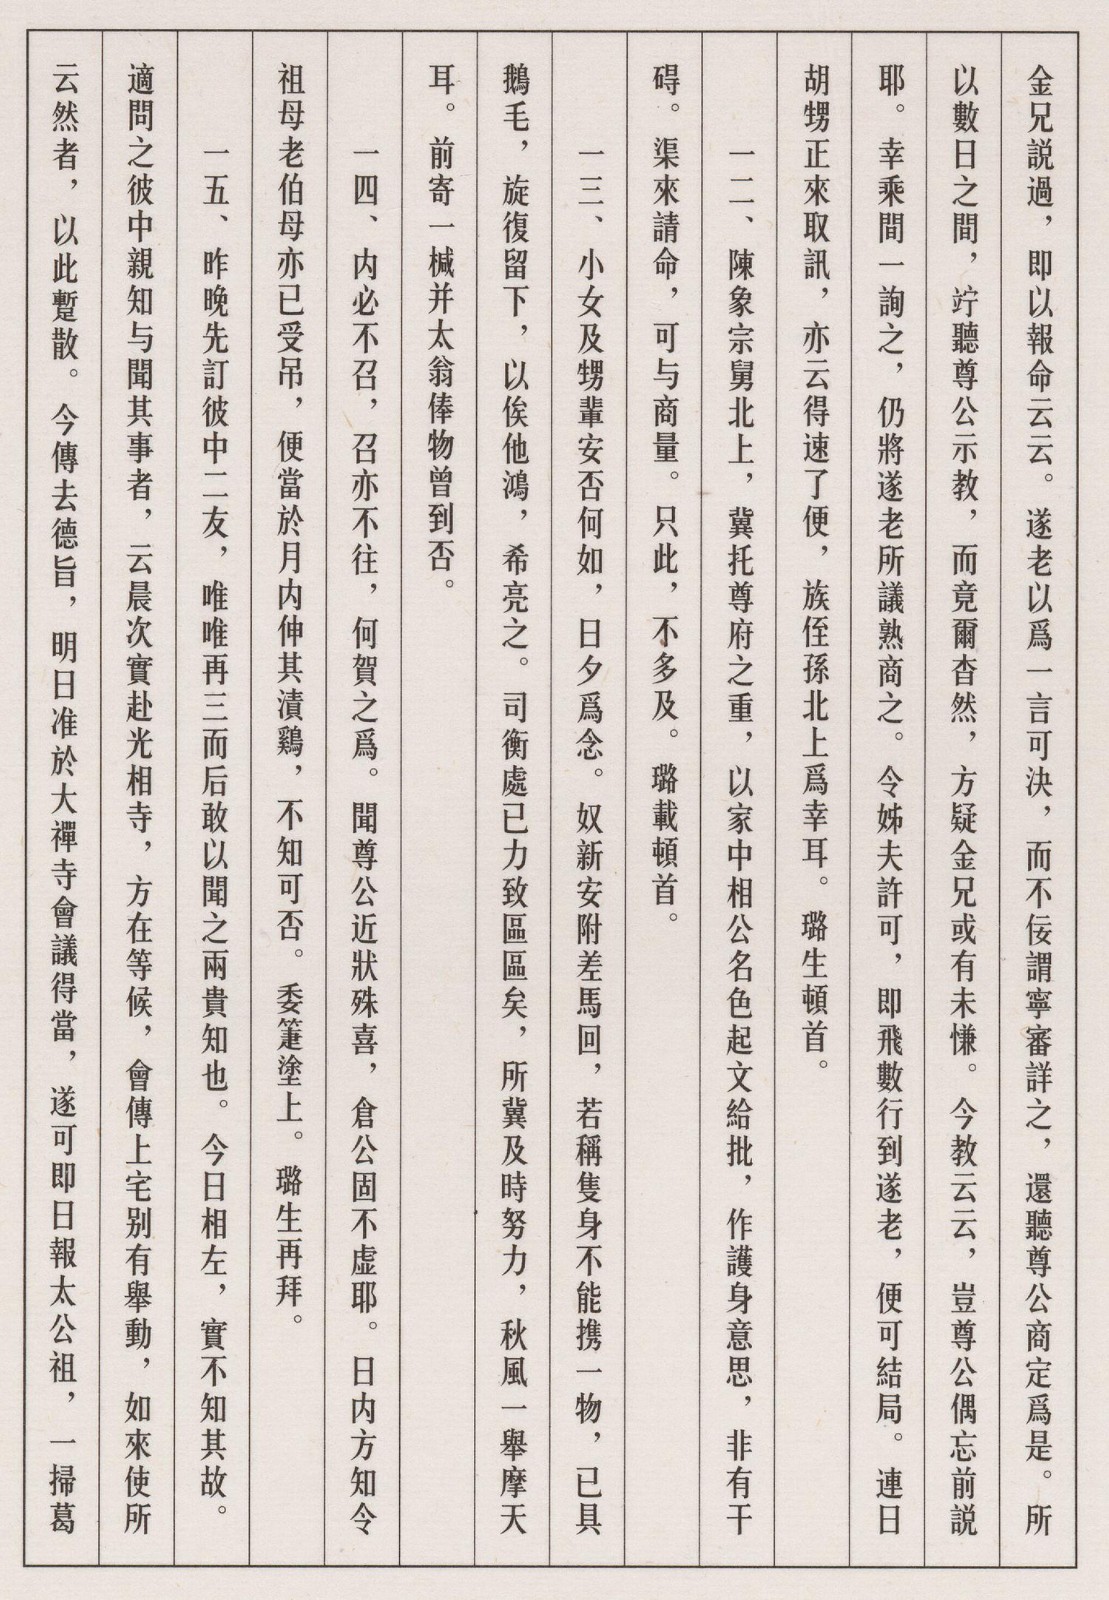 金兄説過，即以報命云云。遂老以爲一言可決，而不佞謂寧審詳之，還聽尊公商定爲是。所
以數日之間，竚聽尊公示教，而竟爾杳然，方疑金兄或有未慊。今教云云，豈尊公偶忘前説
耶。幸乘間一詢之，仍將遂老所議熟商之。令姊夫許可，即飛數行到遂老，便可結局。連日
胡甥正來取訊，亦云得速了便，族侄孫北上爲幸耳。璐生頓首。
一二、陳象宗舅北上，冀托尊府之重，以家中相公名色起文給批，作護身意思，非有干
碍。渠來請命，可与商量。只此，不多及。璐載頓首。
一三、小女及甥輩安否何如，日夕爲念。奴新安附差馬回，若稱隻身不能携一物，已具
鵝毛，旋復留下，以俟他鴻，希亮之。司衡處已力致區區矣，所冀及時努力，秋風一舉摩天
耳。前寄一椷并太翁俸物曾到否。
一四、内必不召，召亦不往，何賀之爲。聞尊公近狀殊喜，倉公固不虚耶。日内方知令
祖母老伯母亦已受吊，便當於月内伸其漬鷄，不知可否。委箑塗上。璐生再拜。
一五、昨晚先訂彼中二友，唯唯再三而后敢以聞之兩貴知也。今日相左，實不知其故。
適問之彼中親知与聞其事者，云晨次實赴光相寺，方在等候，會傳上宅别有舉動，如來使所
云然者，以此蹔散。今傳去德旨，明日准於大禪寺會議得當，遂可即日報太公祖，一掃葛